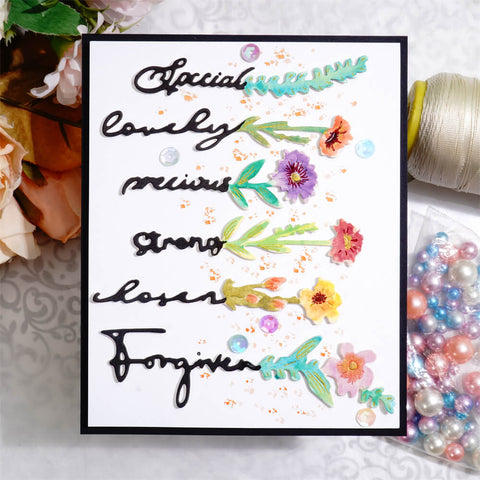 Special
lovely
precious
strong
chosen
Forgiven